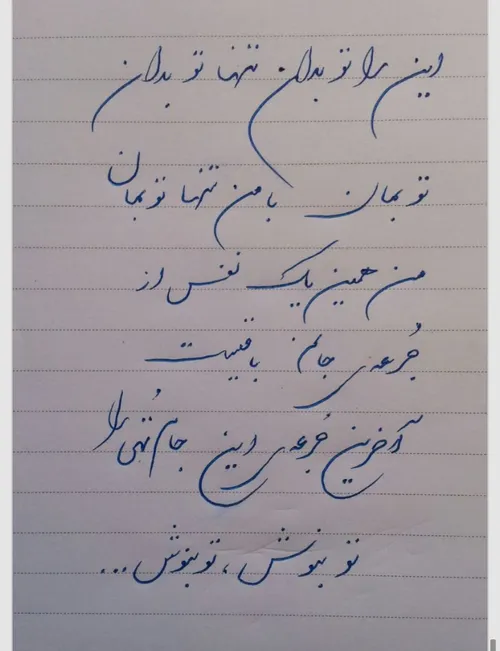 این را تو بدان تنها تو بدان
تو بمان با من تنها تو بمان
من همین یک نفس از
جُرعه‌ی جانم باقیست
آخرین جُرعه‌ی این جام تُهی را
تو بنوش، تو بنوش...